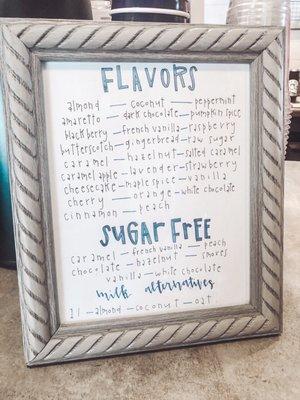 FLAVORS
almond — coconut — peppermint
amaretto — dark chocolate — pumpkin spice
blackberry — french vanilla — raspberry
butterscotch — gingerbread — raw sugar
caramel — hazelnut — salted caramel
caramel apple — lavender — strawberry
cheesecake — maple spice — vanilla
cherry — orange — white chocolate
cinnamon — peach
SUGAR FREE
caramel — french vanilla — peach
chocolate — hazelnut — smores
vanilla — white chocolate
milk alternatives
— almond — coconut — oat